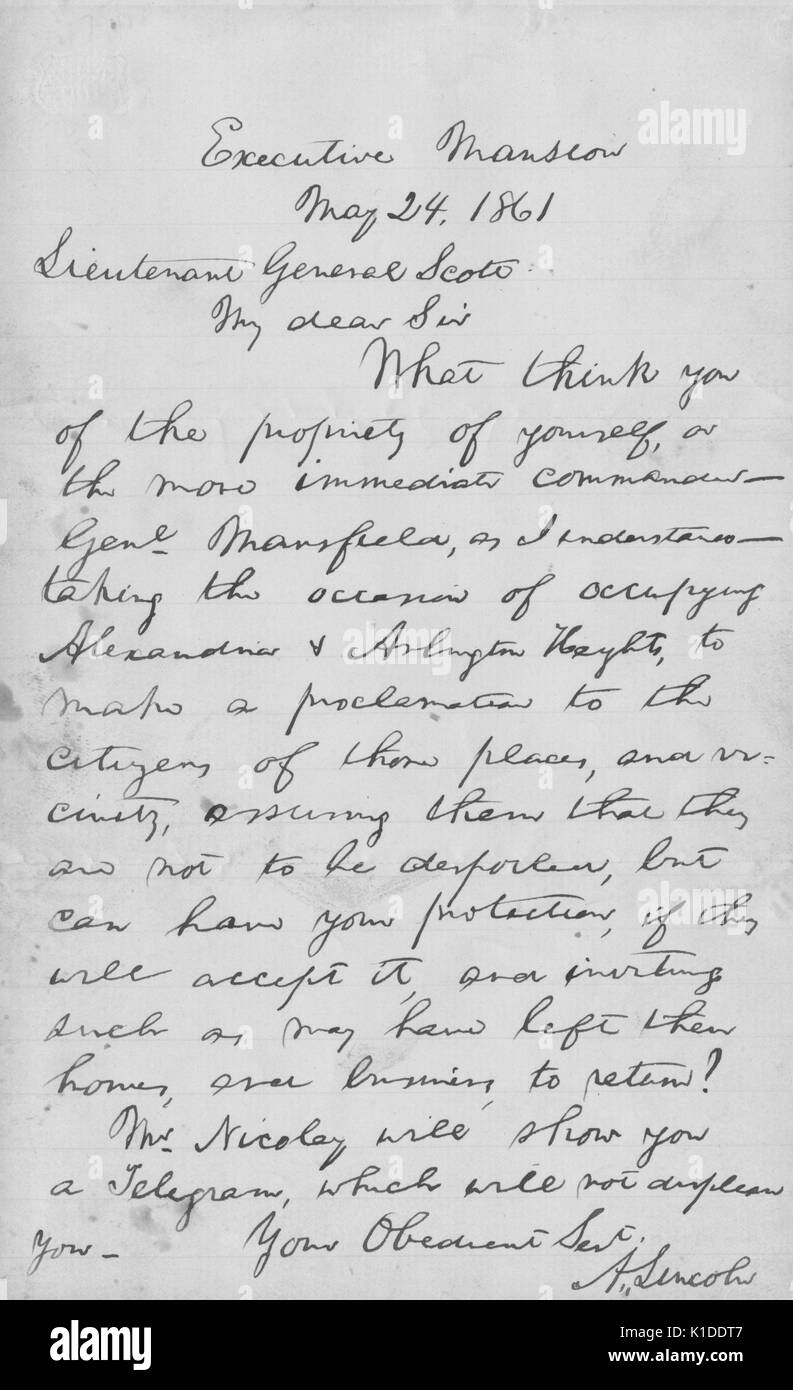 Executive Mansion
May 24, 1861
Lieutenant General Scott
My dear Sir
What think you
of the propriety of yourself, or
the more immediate commander—
Genl. Mansfield, as I understand—
taking the occasion of occupying
Alexandria & Arlington Heights, to
make a proclamation to the
citizens of those places, and vi-
cinity, assuring them that they
are not to be despoiled, but
can have your protection, if they
will accept it, and inviting
such as may have left their
homes, and business, to return?
Mr. Nicolay will show you
a Telegram, which will not displease
you— Your Obedient Servt.
A. Lincoln
a alamy
alamy
a
alamy
alamy
a
a
alamy
Image ID: K1DDT7
www.alamy.com